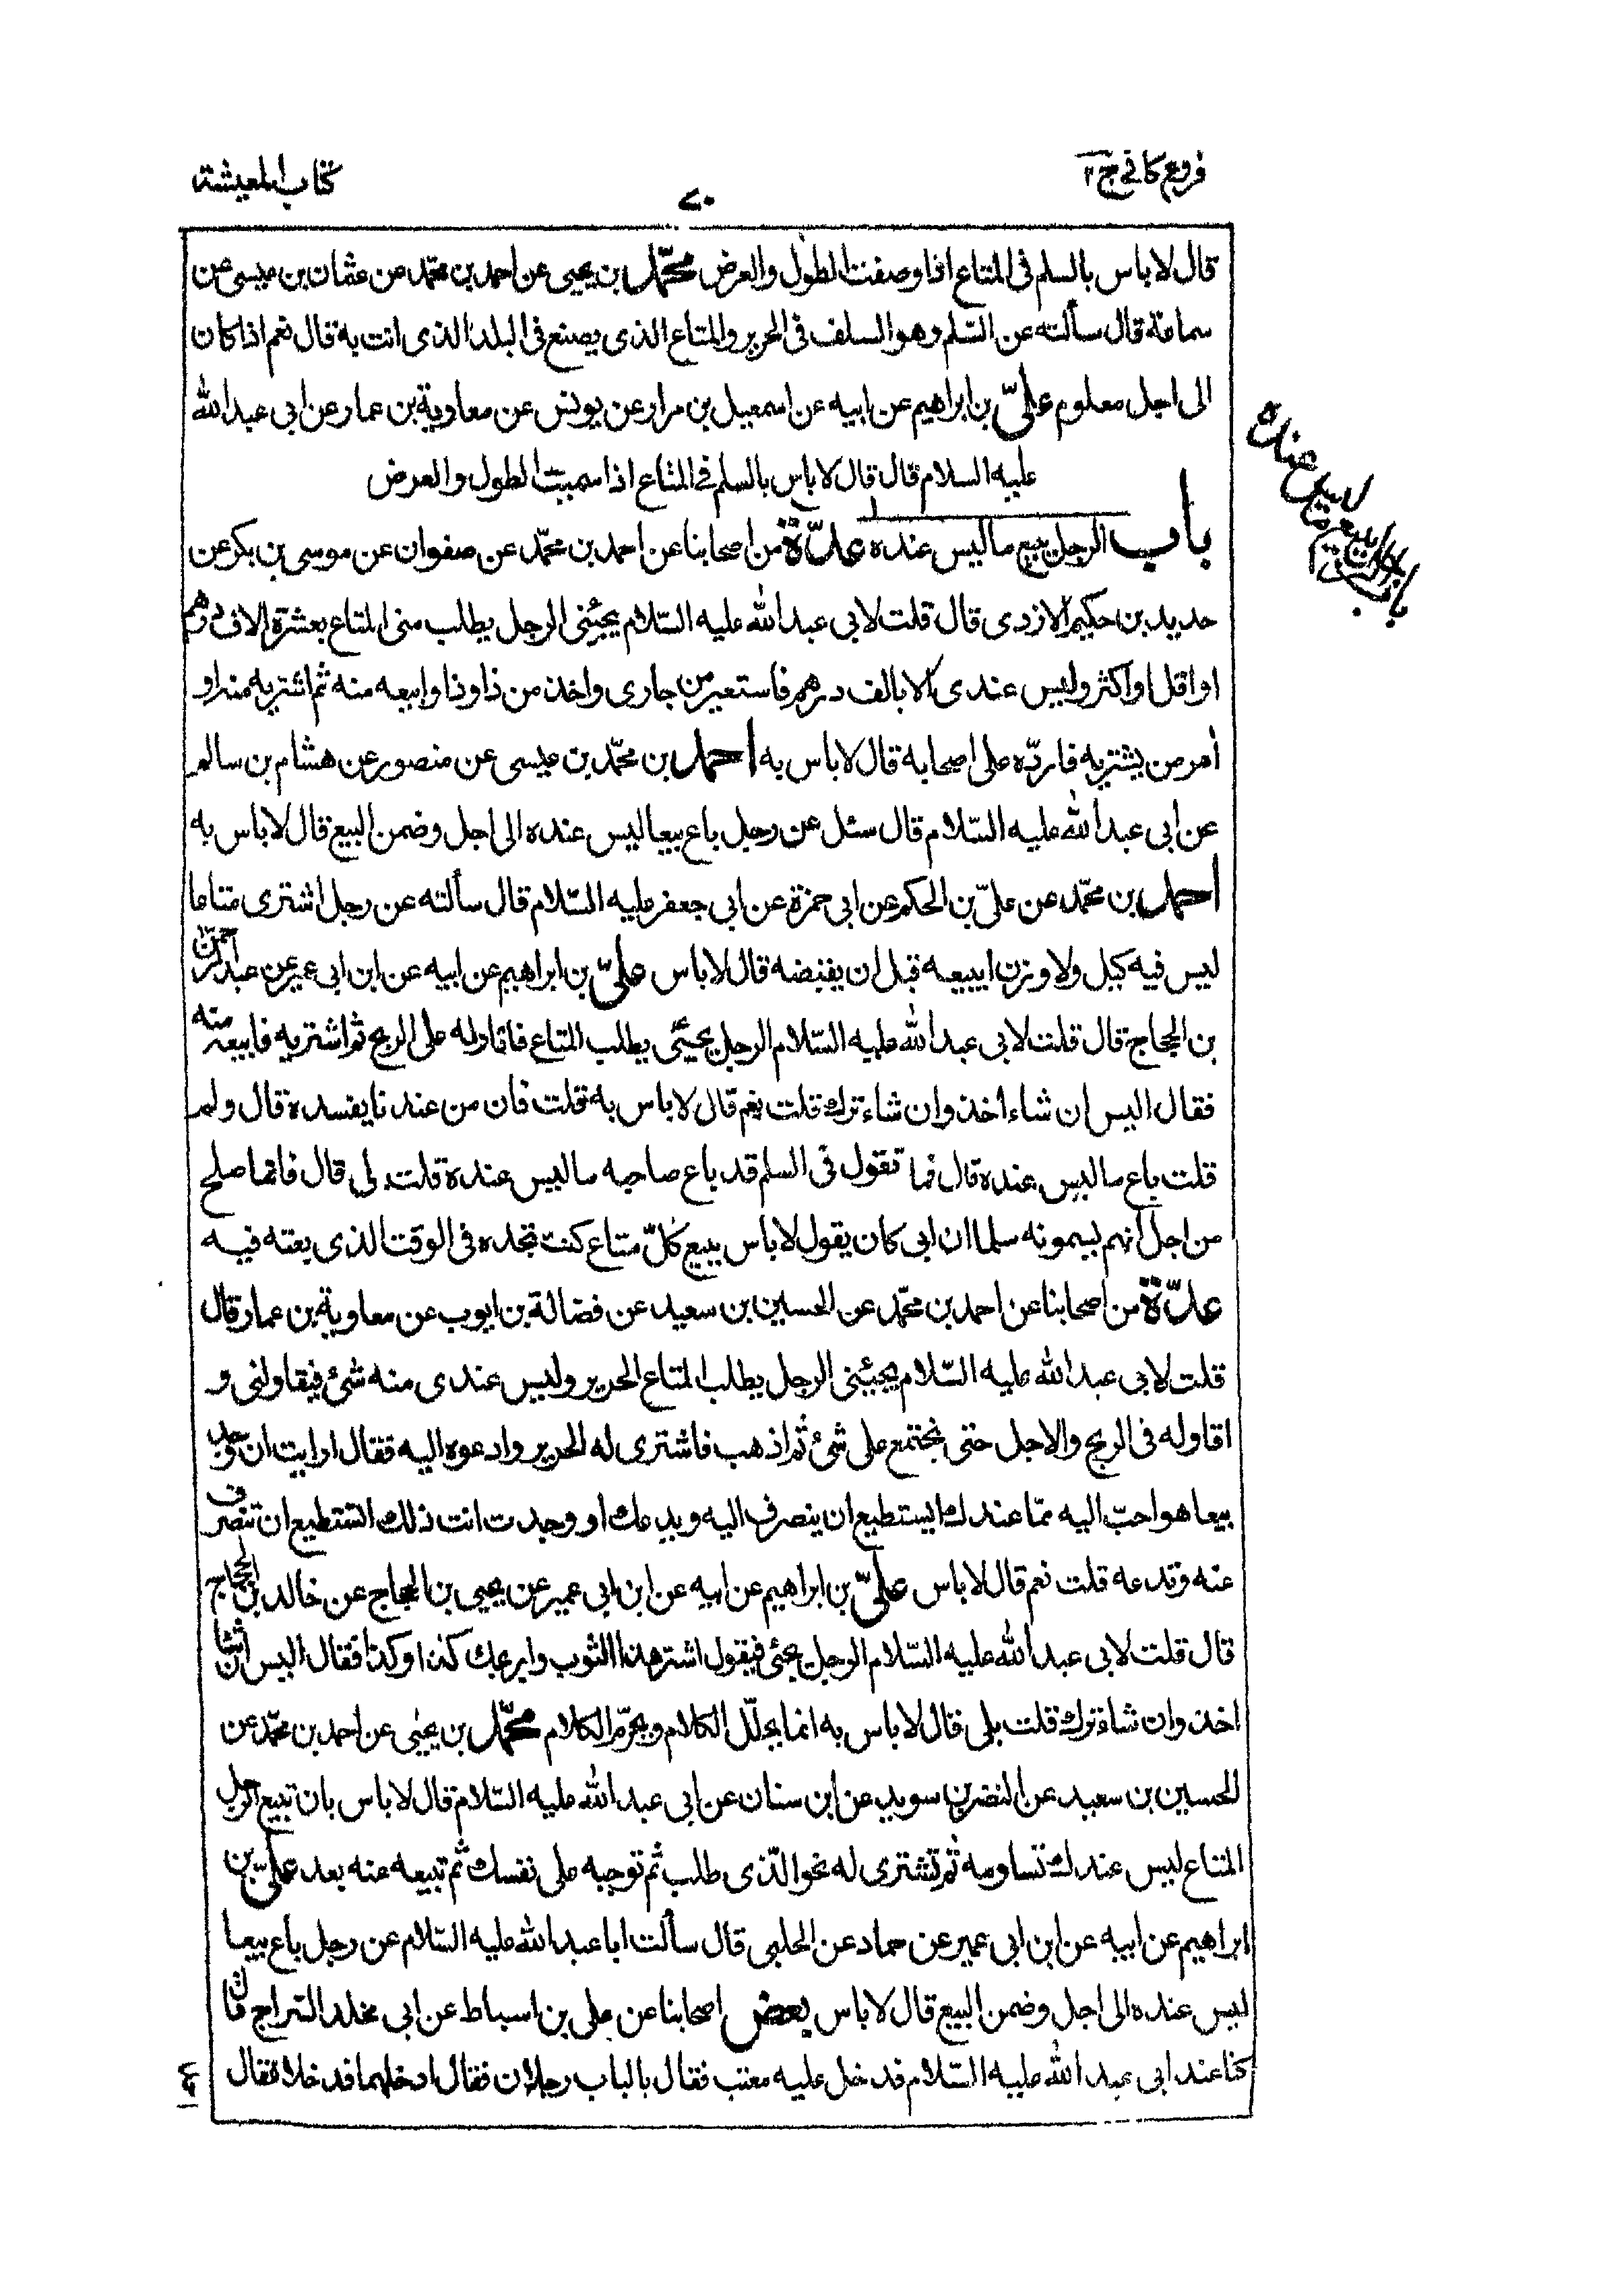 فروع كافى ج ٢
٧٠
كتاب المعيشة
قال لا باس بالسلم فى المتاع اذا وصفت الطول والعرض محمّد بن يحيى عن احمد بن محمّد عن عثمان بن عيسى عن
سماعة قال سألته عن السّلم وهو السلف فى الحرير والمتاع الذى يصنع فى البلد الذى انت به قال نعم اذا كان
الى اجل معلوم علىّ بن ابراهيم عن ابيه عن اسمعيل بن مرار عن يونس عن معاوية بن عمار عن ابى عبد الله
عليه السلام قال قال لا باس بالسلم فى المتاع اذا سميت الطول والعرض
باب الرجل يبيع ما ليس عنده
باب الرجل يبيع ما ليس عنده عدّة من اصحابنا عن احمد بن محمّد عن صفوان عن موسى بن بكر عن
حديد بن حكيم الازدى قال قلت لابى عبد الله عليه السّلام يجيئنى الرجل يطلب منى المتاع بعشرة الاف درهم
او اقل او اكثر وليس عندى الا بالف درهم فاستعير من جارى واخذ من ذا وذا وابيعه منه ثم اشتريه منه او
أمر من يشتريه فاردّه على اصحابه قال لا باس به احمد بن محمّد بن عيسى عن منصور عن هشام بن سالم
عن ابى عبد الله عليه السّلام قال سئل عن رجل باع بيعا ليس عنده الى اجل وضمن البيع قال لا باس به
احمد بن محمّد عن علىّ بن الحكم عن ابى حمزة عن ابى جعفر عليه السّلام قال سألته عن رجل اشترى متاعا
ليس فيه كيل ولا وزن ايبيعه قبل ان يقبضه قال لا باس علىّ بن ابراهيم عن ابيه عن ابن ابى عمير عن عبد الرحمن
بن الحجاج قال قلت لابى عبد الله عليه السّلام الرجل يجيئى يطلب المتاع فاقاوله على الربح ثم اشتريه فابيعه منه
فقال اليس ان شاء اخذ وان شاء ترك قلت نعم قال لا باس به قلت فان من عندنا يفسده قال ولم
قلت باع ما ليس عنده قال فما تقول فى السلم قد باع صاحبه ما ليس عنده قلت بلى قال فانما صلح
من اجل انهم يسمونه سلما ان ابى كان يقول لا باس ببيع كلّ متاع كنت تجده فى الوقت الذى بعته فيه
عدّة من اصحابنا عن احمد بن محمّد عن الحسين بن سعيد عن فضالة بن ايوب عن معاوية بن عمار قال
قلت لابى عبد الله عليه السّلام يجيئنى الرجل يطلب المتاع الحرير وليس عندى منه شئ فيقاولنى و
اقاوله فى الربح والاجل حتى نجتمع على شئ ثم اذهب فاشترى له الحرير وادعوه اليه فقال ارايت ان وجد
بيعا هو احبّ اليه ممّا عندك ايستطيع ان ينصرف اليه ويدعك او وجدت انت ذلك اتستطيع ان تنصرف
عنه وتدعه قلت نعم قال لا باس علىّ بن ابراهيم عن ابيه عن ابن ابى عمير عن يحيى بن الحجاج عن خالد بن الحجاج
قال قلت لابى عبد الله عليه السّلام الرجل يجئى فيقول اشتر هذا الثوب واربحك كذا وكذا فقال اليس ان شاء
اخذ وان شاء ترك قلت بلى قال لا باس به انما يحلّل الكلام ويحرّم الكلام محمّد بن يحيى عن احمد بن محمّد عن
الحسين بن سعيد عن النضر بن سويد عن ابن سنان عن ابى عبد الله عليه السّلام قال لا باس بان تبيع الرجل
المتاع ليس عندك تساومه ثم تشترى له نحو الّذى طلب ثم توجبه على نفسك ثم تبيعه منه بعد علىّ بن
ابراهيم عن ابيه عن ابن ابى عمير عن حماد عن الحلبى قال سألت ابا عبد الله عليه السّلام عن رجل باع بيعا
ليس عنده الى اجل وضمن البيع قال لا باس بعض اصحابنا عن على بن اسباط عن ابى مخلد السّراج قال
كنا عند ابى عبد الله عليه السّلام فدخل عليه معتب فقال بالباب رجلان فقال ادخلهما فدخلا فقال